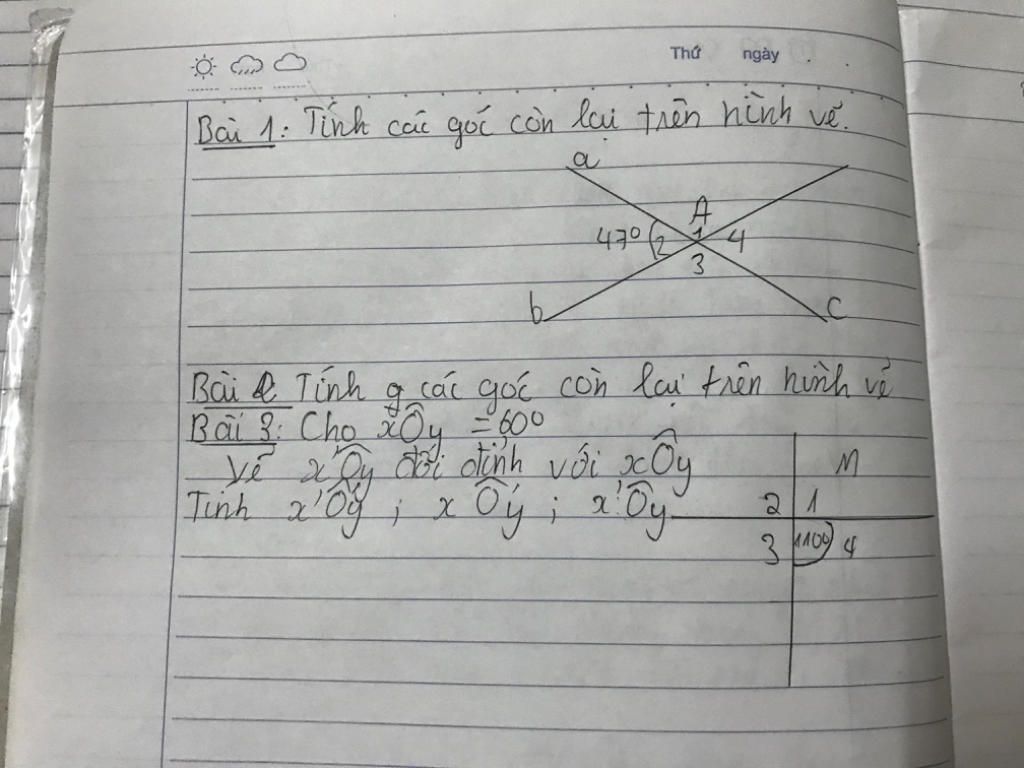 Thứ ngày
Bài 1: Tính các góc còn lại trên hình vẽ.
a
A
47° 2 1 4
3
b c
Bài 2 Tính g các góc còn lại trên hình vẽ
Bài 3: Cho xÔy = 60°
Vẽ x'Ôy' đối đỉnh với xÔy
M
Tính x'Ôy' ; xÔy' ; x'Ôy
2 1
3 110° 4